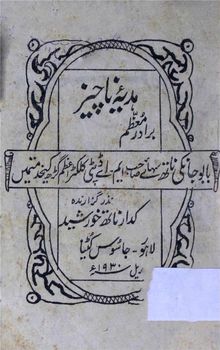 ہدیۂ ناچیز
برادرِ معظم
بابو جانکی ناتھ سہائے صاحب ایم۔اے ڈپٹی کلکٹر اعظم گڑھ کیخدمتمیں
نذر گزارندہ
کدار ناتھ خورشید
لاہو۔ جاسوس کٹیا
۱۹۳۰ء